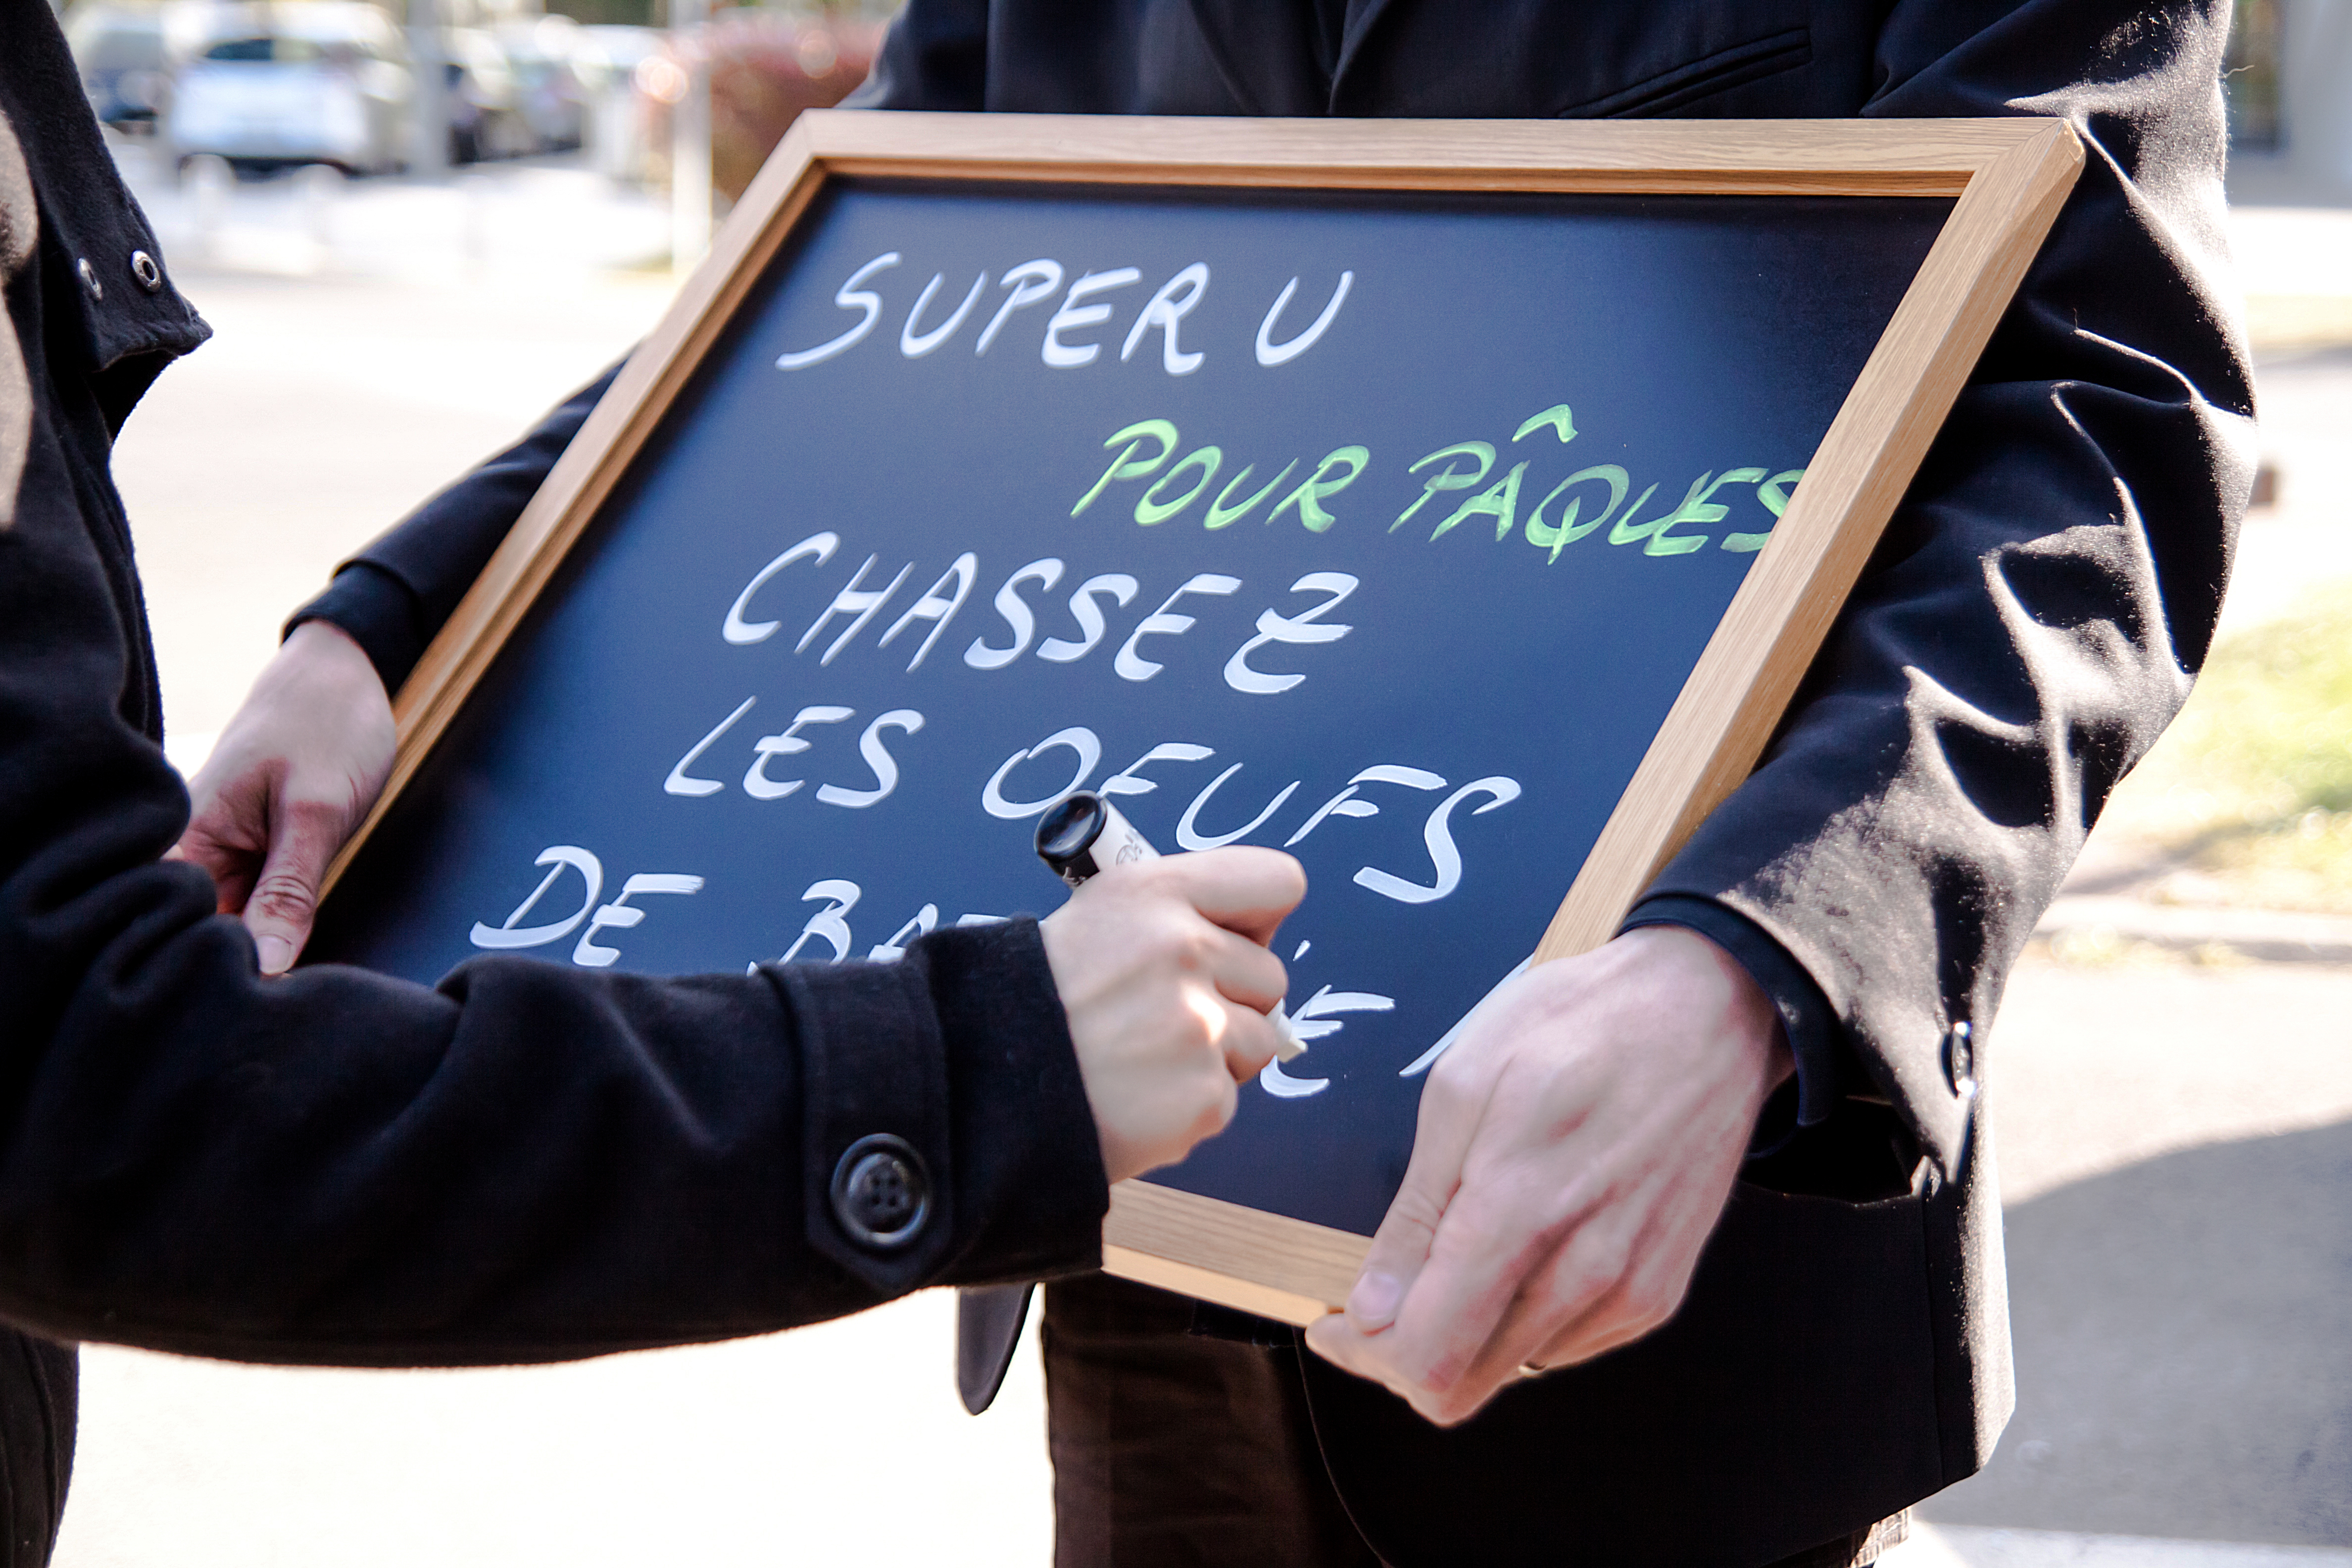 SUPER U
POUR PÂQUES
CHASSEZ
LES OEUFS
DE